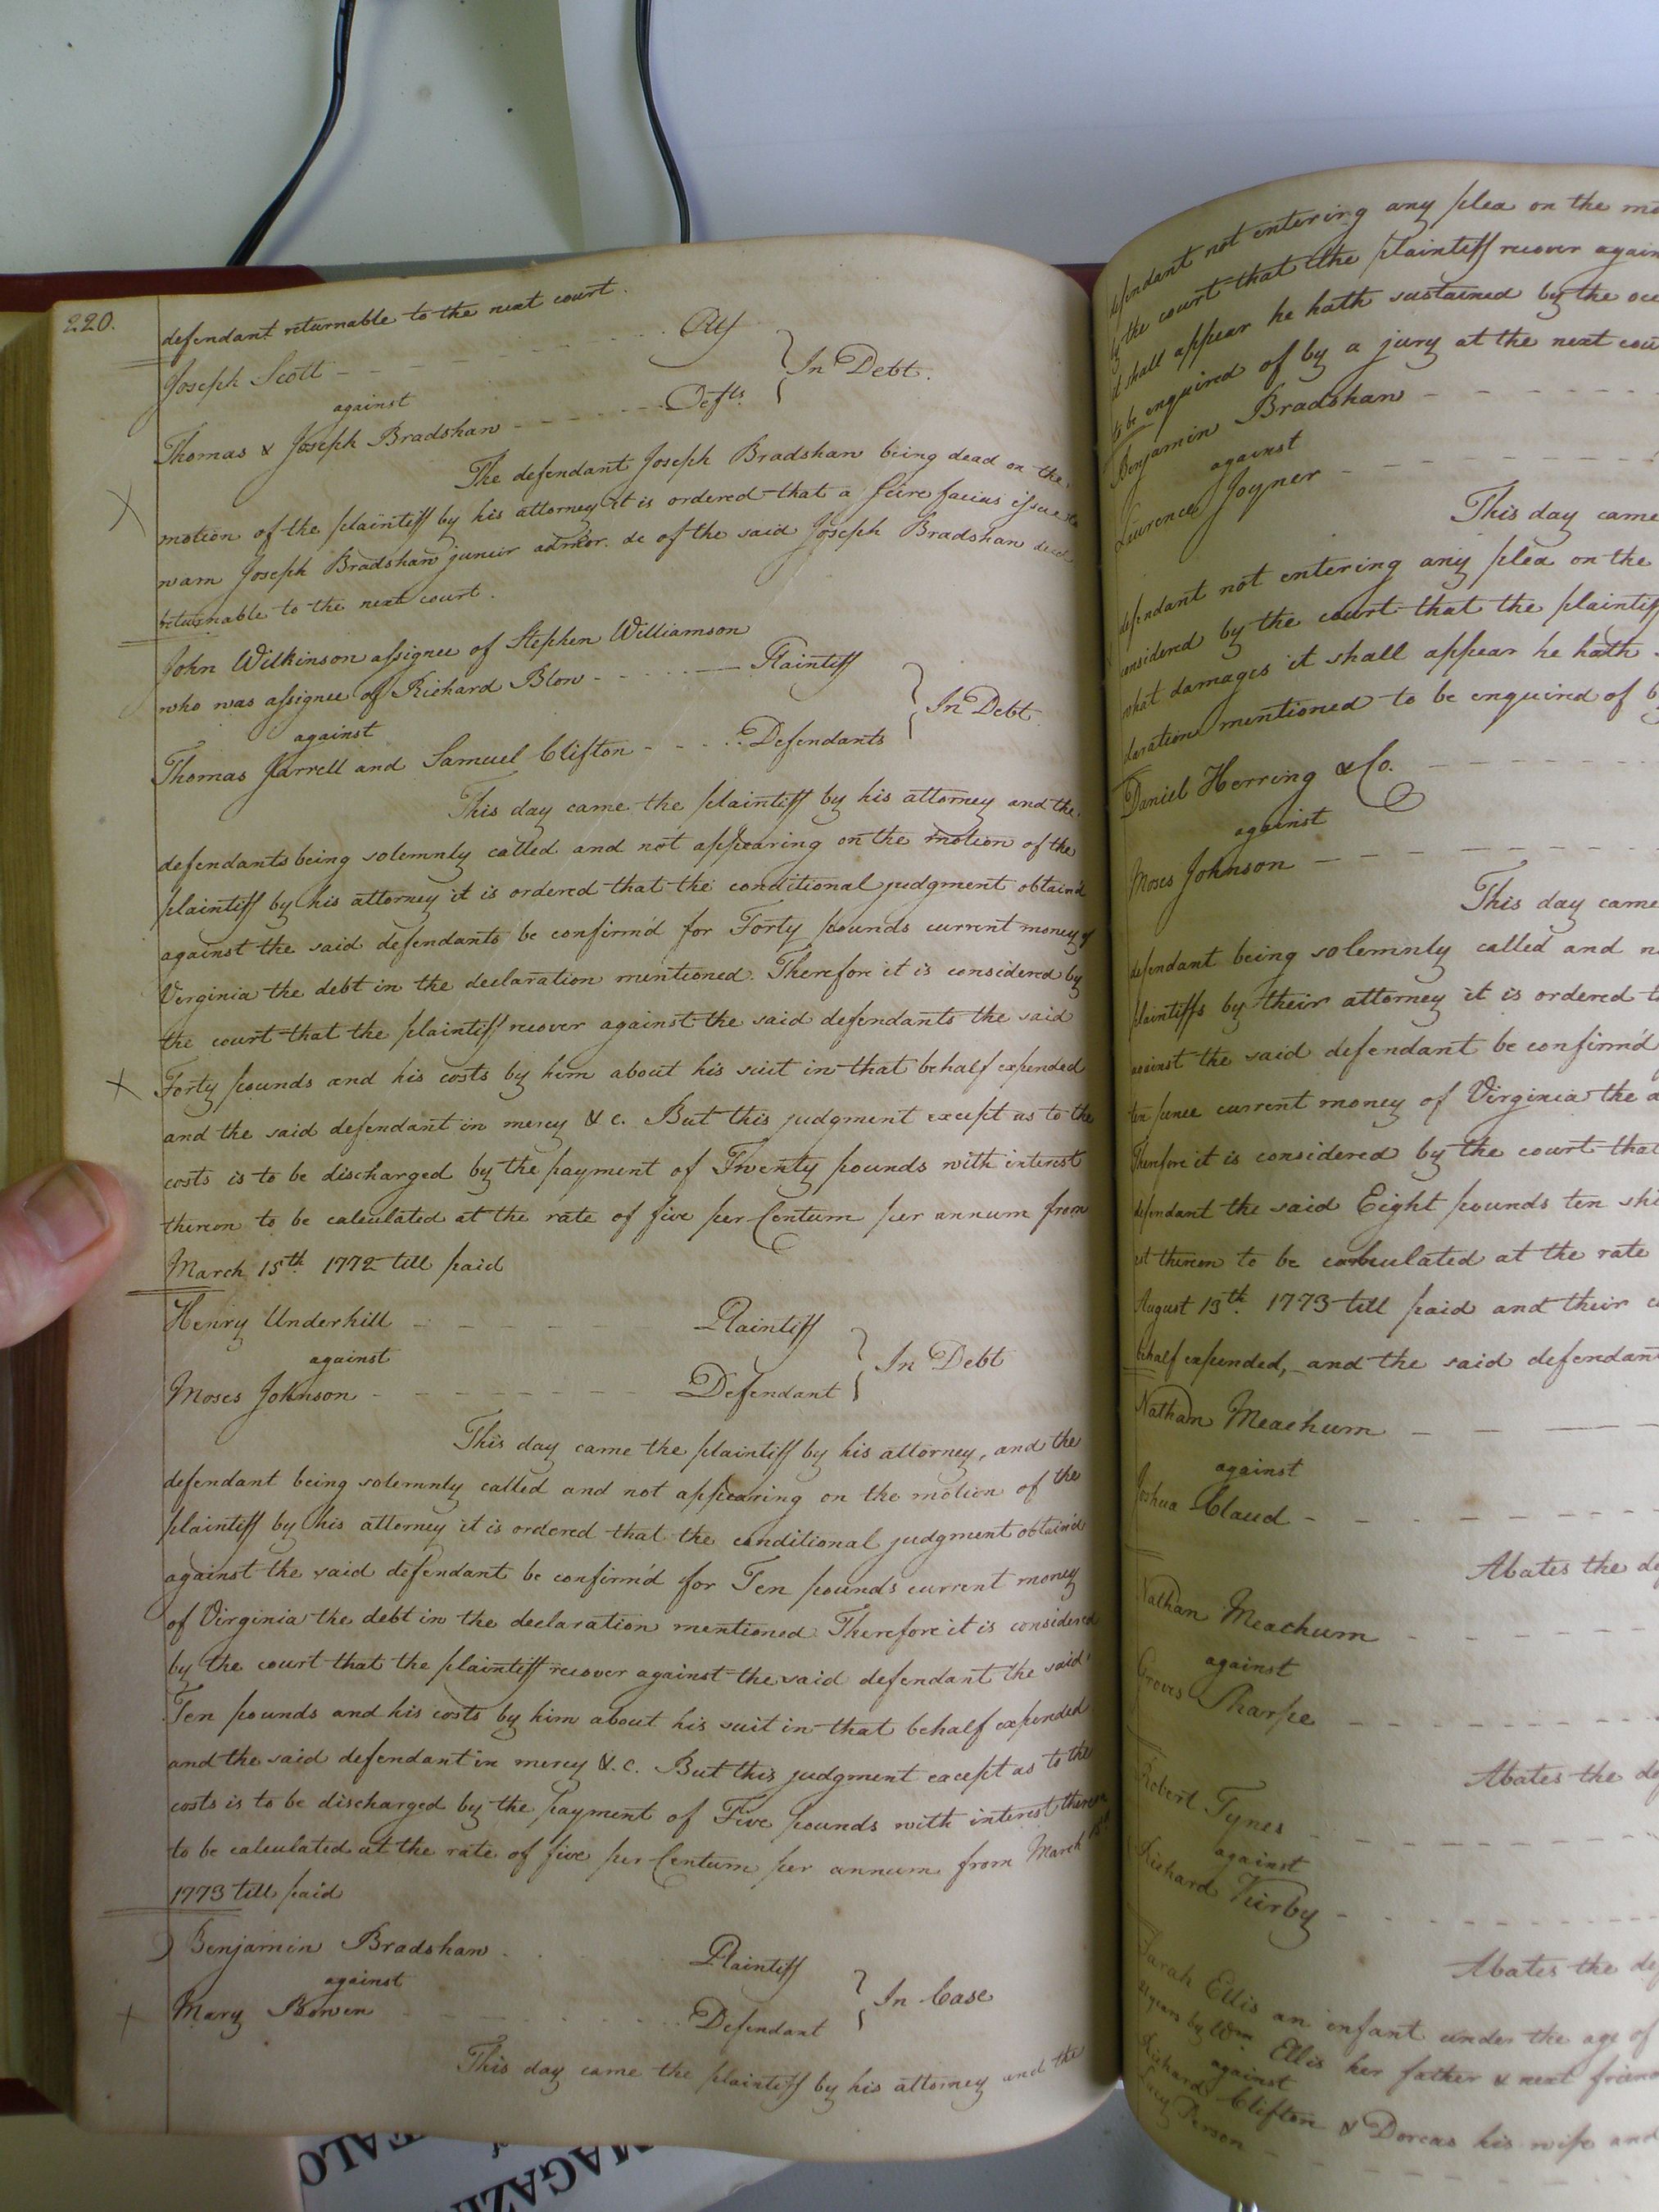 220.
defendant returnable to the next court.
Joseph Scott - - - - - - - Plf
against } In Debt.
Thomas & Joseph Bradshaw - - - - - - Defts.
The defendant Joseph Bradshaw being dead on the
motion of the plaintiff by his attorney it is ordered that a Scire facias issue to
warn Joseph Bradshaw junior admor. de of the said Joseph Bradshaw decd
returnable to the next court.
John Wilkinson assignee of Stephen Williamson
who was assignee of Richard Blow - - - - - Plaintiff
against } In Debt
Thomas Jarrell and Samuel Clifton - - - - Defendants
This day came the plaintiff by his attorney and the
defendants being solemnly called and not appearing on the motion of the
plaintiff by his attorney it is ordered that the conditional judgment obtain'd
against the said defendants be confirm'd for Forty pounds current money of
Virginia the debt in the declaration mentioned. Therefore it is considered by
the court that the plaintiff recover against the said defendants the said
Forty pounds and his costs by him about his suit in that behalf expended
and the said defendant in mercy & c. But this judgment except as to the
costs is to be discharged by the payment of Twenty pounds with interest
thereon to be calculated at the rate of five per Centum per annum from
March 15th. 1772 till paid
Henry Underhill - - - - - Plaintiff
against } In Debt
Moses Johnson - - - - - - - Defendant
This day came the plaintiff by his attorney, and the
defendant being solemnly called and not appearing on the motion of the
plaintiff by his attorney it is ordered that the conditional judgment obtain'd
against the said defendant be confirm'd for Ten pounds current money
of Virginia the debt in the declaration mentioned. Therefore it is considered
by the court that the plaintiff recover against the said defendant the said
Ten pounds and his costs by him about his suit in that behalf expended
and the said defendant in mercy &. c. But this judgment except as to the
costs is to be discharged by the payment of Five pounds with interest thereon
to be calculated at the rate of five per Centum per annum from March
1773 till paid
Benjamin Bradshaw - - Plaintiff
against } In Case
Mary Bowen - - - - - - Defendant
This day came the plaintiff by his attorney and the
defendant not entering any plea on the mo
by the court that the plaintiff recover again
it shall appear he hath sustained by the occ
to be enquired of by a jury at the next cou
Benjamin Bradshaw - - - - - -
against
Laurence Joyner - - - - - - - -
This day came
defendant not entering any plea on the
considered by the court that the plaintiff
what damages it shall appear he hath
claration mentioned to be enquired of b
Daniel Herring & Co. - - - - - -
against
Moses Johnson - - - - - - - -
This day came
defendant being solemnly called and n
plaintiffs by their attorney it is ordered t
against the said defendant be confirm'd
ten pence current money of Virginia the
Therefore it is considered by the court that
defendant the said Eight pounds ten shi
est thereon to be calculated at the rate
August 13th. 1773 till paid and their c
behalf expended, and the said defendan
Nathan Meachum - - -
against
Joshua Claud - - - - - - - -
Abates the de
Nathan Meachum - - - - -
against
Groves Sharpe - - - - - - -
Abates the de
Robert Tynes - - - - - - - -
against
Richard Kirby - - - - - - -
Abates the de
Sarah Ellis an infant under the age of
21 years by Wm. Ellis her father & next friend
against
Richard Clifton & Dorcas his wife and
Lucy Person - - - - - - -
TALO
of
MAGAZI